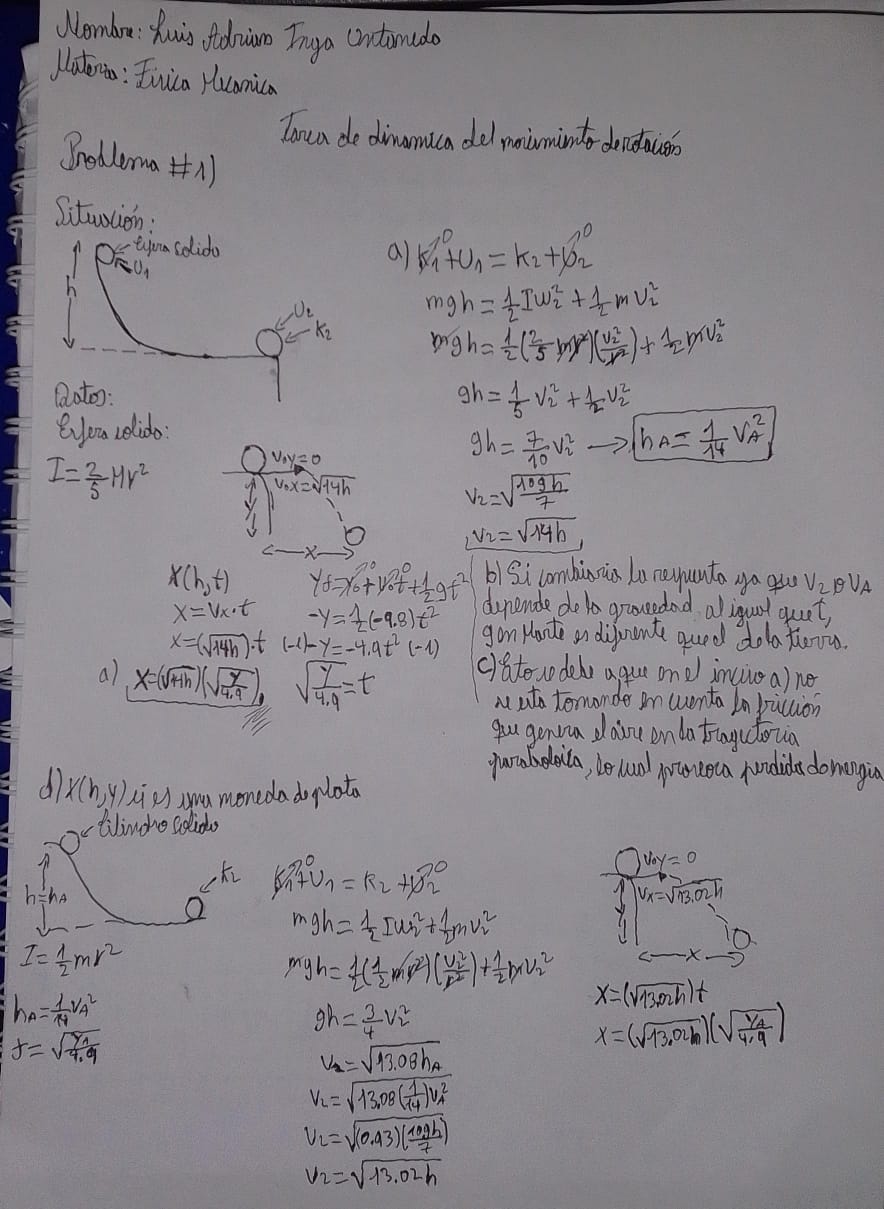 Nombre: Luis Adriano Inga
Materia: Física Mecanica
Tarea de dinamica del movimiento de rotación
Problema #1)
Situación:
Esfera solida
U1
h
U2
K2
Datos:
Esfera solida:
I = 2/5 Mr²
a) K1 + U1 = K2 + U2
0 0
mgh = 1/2 Iω2² + 1/2 m V2²
mgh = 1/2 (2/5 mr²)(V2²/r²) + 1/2 m V2²
gh = 1/5 V2² + 1/2 V2²
gh = 7/10 V2² → hA = 1/14 VA²
V2 = √(10gh/7)
V2 = √14h
Voy = 0
Vox = √14h
y
x
X(h,t)
X = Vx·t
X = (√14h)·t
a) X = (√14h)(√(y/4.9))
Yf = Y0 + V0t + 1/2 gt²
0 0
-Y = 1/2 (-9.8)t²
(-1) -Y = -4.9t² (-1)
√(y/4.9) = t
b) Si cambiaria la respuesta ya que V2 o VA
depende de la gravedad al igual que t,
g en Marte es diferente que el de la tierra.
c) Esto se debe a que en el inciso a) no
se esta tomando en cuenta la fricción
que genera el aire en la trayectoria
paraboloica, lo cual provoca perdida de energia
d) X(h,y) si es una moneda de plata
Cilindro solido
h=hA
K2
I = 1/2 mr²
hA = 1/14 VA²
t = √(YA/4.9)
K1 + U1 = K2 + U2
0 0
mgh = 1/2 Iω2² + 1/2 m V2²
mgh = 1/2 (1/2 mr²)(V2²/r²) + 1/2 m V2²
gh = 3/4 V2²
V2 = √13.08hA
V2 = √13.08(1/14)VA²
V2 = √(0.93)(10gh/7)
V2 = √13.02h
Voy = 0
Vx = √13.02h
y
x
X = (√13.02h)t
X = (√13.02h)(√(YA/4.9))